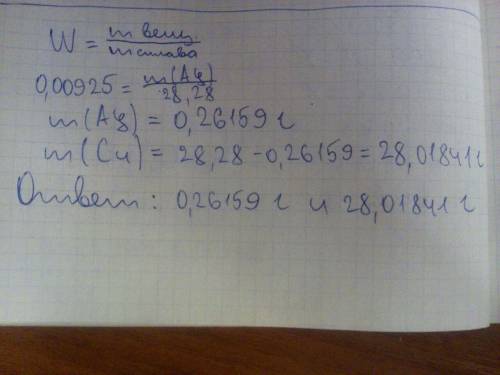 W = m вещ. / m сплава
0,00925 = m(Ag) / 28,28
m(Ag) = 0,26159 г
m(Cu) = 28,28 - 0,26159 = 28,01841 г
Ответ: 0,26159 г и 28,01841 г